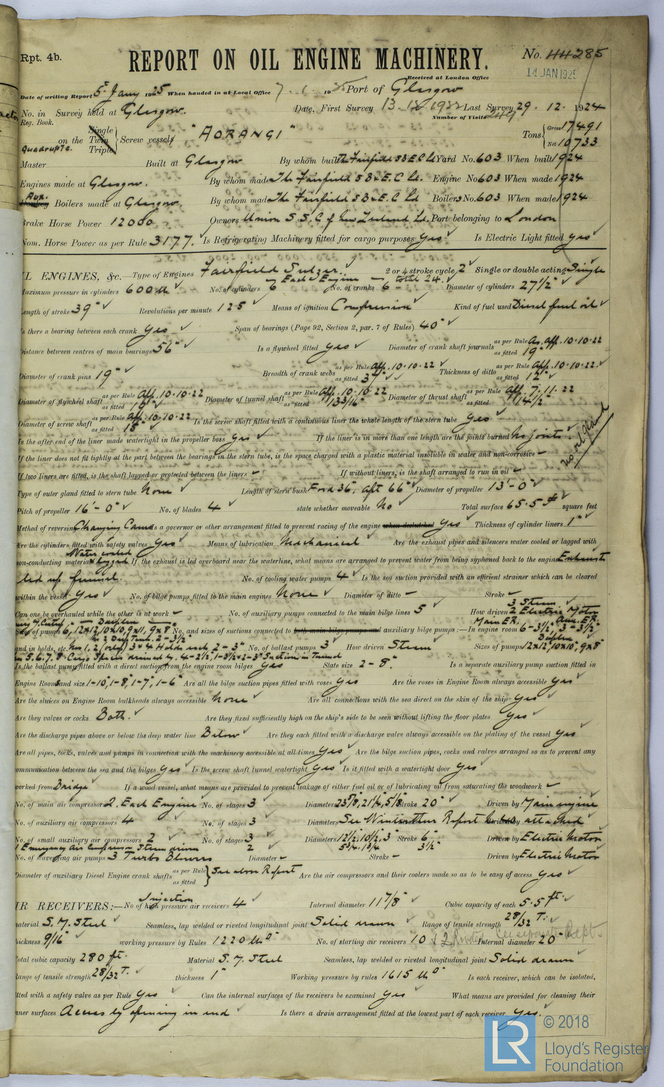 Rpt. 4b.
REPORT ON OIL ENGINE MACHINERY.
No. 44285
Received at London Office
14 JAN 1925
Date of writing Report 5 Jany 1925 When handed in at Local Office 7. 1. 1925 Port of Glasgow
No. in Survey held at Glasgow. Date, First Survey Last Survey 29. 12. 1924
Reg. Book. Number of Visits
on the Single Twin Triple Quadruple Screw vessel "AORANGI" Tons Gross 17491 Net 10733
Master Built at Glasgow By whom built The Fairfield S B & E. C Ld Yard No. 603 When built 1924
Engines made at Glasgow. By whom made The Fairfield S B & E. C Ld. Engine No. 603 When made 1924
Boilers made at Glasgow By whom made The Fairfield S B & E. C Ld. Boilers No. 603 When made 1924
Brake Horse Power 12000 Owners Union S. S. C of New Zealand Ld. Port belonging to London
Nom. Horse Power as per Rule 3177. Is Refrigerating Machinery fitted for cargo purposes Yes Is Electric Light fitted yes
OIL ENGINES, &c.—Type of Engines Fairfield Sulzer. 2 or 4 stroke cycle 2 Single or double acting Single
Maximum pressure in cylinders 600 No. of cylinders 6 Each Engine No. of cranks 6 total 24. Diameter of cylinders 27½"
Length of stroke 39" Revolutions per minute 125 Means of ignition Compression Kind of fuel used Diesel fuel oil
Is there a bearing between each crank Yes Span of bearings (Page 92, Section 2, par. 7 of Rules) 40"
Distance between centres of main bearings 56" Is a flywheel fitted Yes Diameter of crank shaft journals as per Rule App. 10.10.22 as fitted 19"
Diameter of crank pins 19" Breadth of crank webs as per Rule App. 10.10.22 as fitted Thickness of ditto as per Rule App. 10.10.22 as fitted 12"
Diameter of flywheel shaft as per Rule App. 10.10.22 as fitted Diameter of tunnel shaft as per Rule App. 10.10.22 as fitted Diameter of thrust shaft as per Rule App. 7.11.22 as fitted
Diameter of screw shaft as per Rule App. 10.10.22 as fitted 15" Is the screw shaft fitted with a continuous liner the whole length of the stern tube Yes
Is the after end of the liner made watertight in the propeller boss Yes If the liner is in more than one length are the joints burned No joints.
If the liner does not fit tightly at the part between the bearings in the stern tube, is the space charged with a plastic material insoluble in water and non-corrosive –
no oil gland
If two liners are fitted, is the shaft lapped or protected between the liners – If without liners, is the shaft arranged to run in oil –
Type of outer gland fitted to stern tube None Length of stern bush Ford 36" Aft 66" Diameter of propeller 13'-0"
Pitch of propeller 16'-0" No. of blades 4 state whether moveable No Total surface 65.5 square feet
Method of reversing Changing Cams Is a governor or other arrangement fitted to prevent racing of the engine Yes Thickness of cylinder liners 1"
Are the cylinders fitted with safety valves Yes Means of lubrication Mechanical Are the exhaust pipes and silencers water cooled or lagged with
non-conducting material Water cooled & lagged If the exhaust is led overboard near the waterline, what means are arranged to prevent water from being syphoned back to the engine Exhausts
led up funnel No. of cooling water pumps 4 Is the sea suction provided with an efficient strainer which can be cleared
within the vessel Yes No. of bilge pumps fitted to the main engines None Diameter of ditto – Stroke –
Can one be overhauled while the other is at work – No. of auxiliary pumps connected to the main bilge lines 5 How driven 3 Steam 2 Electric Motor
No. and sizes of suctions connected to auxiliary bilge pumps – In engine room
and in holds, etc. No. of ballast pumps 3 How driven Steam Sizes of pumps
Is the ballast pump fitted with a direct suction from the engine room bilges Yes State size 2-8" Is a separate auxiliary pump suction fitted in
Engine Room and size 1-10", 1-8", 1-7", 1-6" Are all the bilge suction pipes fitted with roses Yes Are the roses in Engine Room always accessible Yes
Are the sluices on Engine Room bulkheads always accessible None Are all connections with the sea direct on the skin of the ship Yes
Are they valves or cocks Both. Are they fixed sufficiently high on the ship's side to be seen without lifting the floor plates Yes
Are the discharge pipes above or below the deep water line Below Are they each fitted with a discharge valve always accessible on the plating of the vessel Yes
Are all pipes, cocks, valves and pumps in connection with the machinery accessible at all times Yes Are the bilge suction pipes, cocks and valves arranged so as to prevent any
communication between the sea and the bilges Yes Is the screw shaft tunnel watertight Yes Is it fitted with a watertight door Yes
worked from Bridge If a wood vessel, what means are provided to prevent leakage of either fuel oil or lubricating oil from saturating the woodwork –
No. of main air compressors 2 Each Engine No. of stages 3 Diameters Stroke 20" Driven by Main engine
No. of auxiliary air compressors 4 No. of stages 3 Diameters See Winterthur Report attached
No. of small auxiliary air compressors 2 No. of stages 3 Diameters Stroke 6" Driven by Electric Motor
1 Emergency Air Compressor Steam driven 2 3½"
No. of scavenging air pumps 3 Turbo Blowers Diameter – Stroke – Driven by Electric Motor
Diameter of auxiliary Diesel Engine crank shafts as per Rule as fitted See above Report Are the air compressors and their coolers made so as to be easy of access Yes
AIR RECEIVERS:—No. of high pressure air receivers Injection 4 Internal diameter 11⅞" Cubic capacity of each 5.5 ft
material S. M. Steel Seamless, lap welded or riveted longitudinal joint Solid drawn Range of tensile strength 28/32 T.
thickness 9/16" working pressure by Rules 1220 No. of starting air receivers 10 Internal diameter 20"
Total cubic capacity 280 ft. Material S. M. Steel Seamless, lap welded or riveted longitudinal joint Solid drawn
Range of tensile strength 28/32 T. thickness 1" Working pressure by rules 1615 Is each receiver, which can be isolated,
fitted with a safety valve as per Rule Yes Can the internal surfaces of the receivers be examined Yes What means are provided for cleaning their
inner surfaces Access by opening in end Is there a drain arrangement fitted at the lowest part of each receiver Yes.
LR © 2018
Lloyd's Register
Foundation